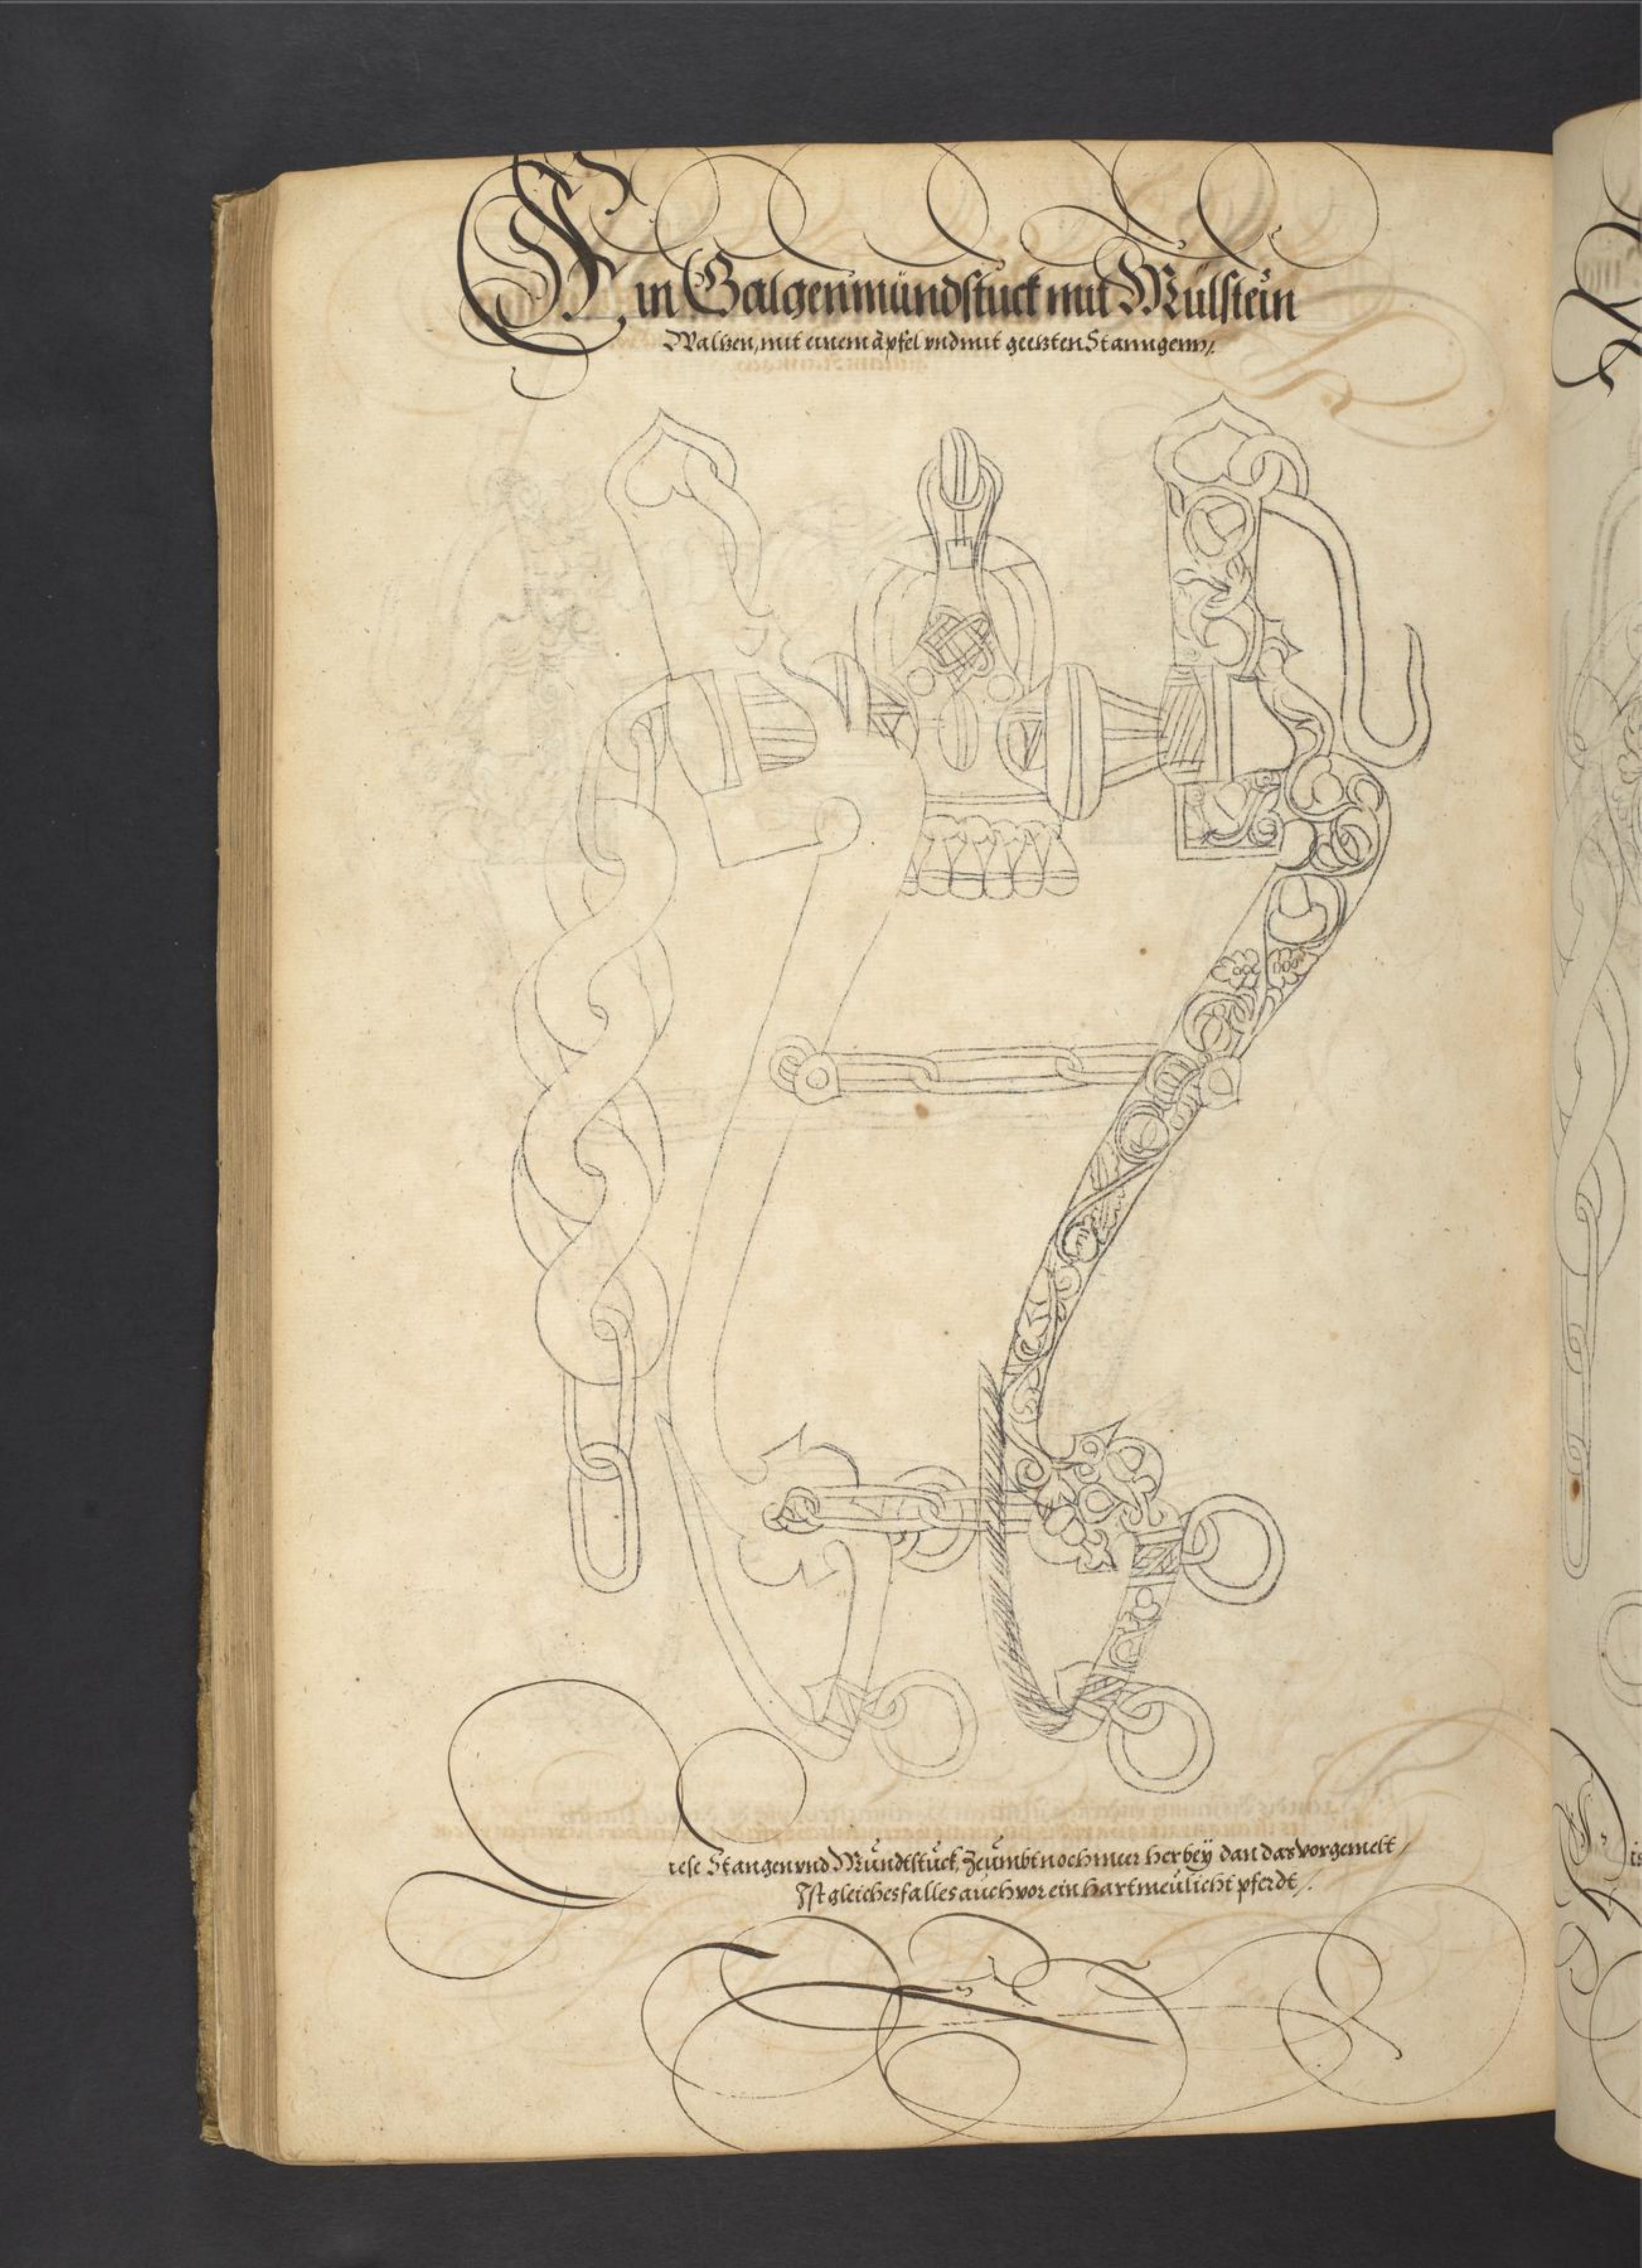 Ein Galgenmündstuck mit Mülstein
Walzen, mit einem äpfel vnd mit geetzten Stanngenn /.
iese Stangen vnd Mündtstück, Zeümbt noch meer herbeÿ dan das vorgemelt /
Ist gleichesfalles auch vor ein hartmeülicht pferdt /.